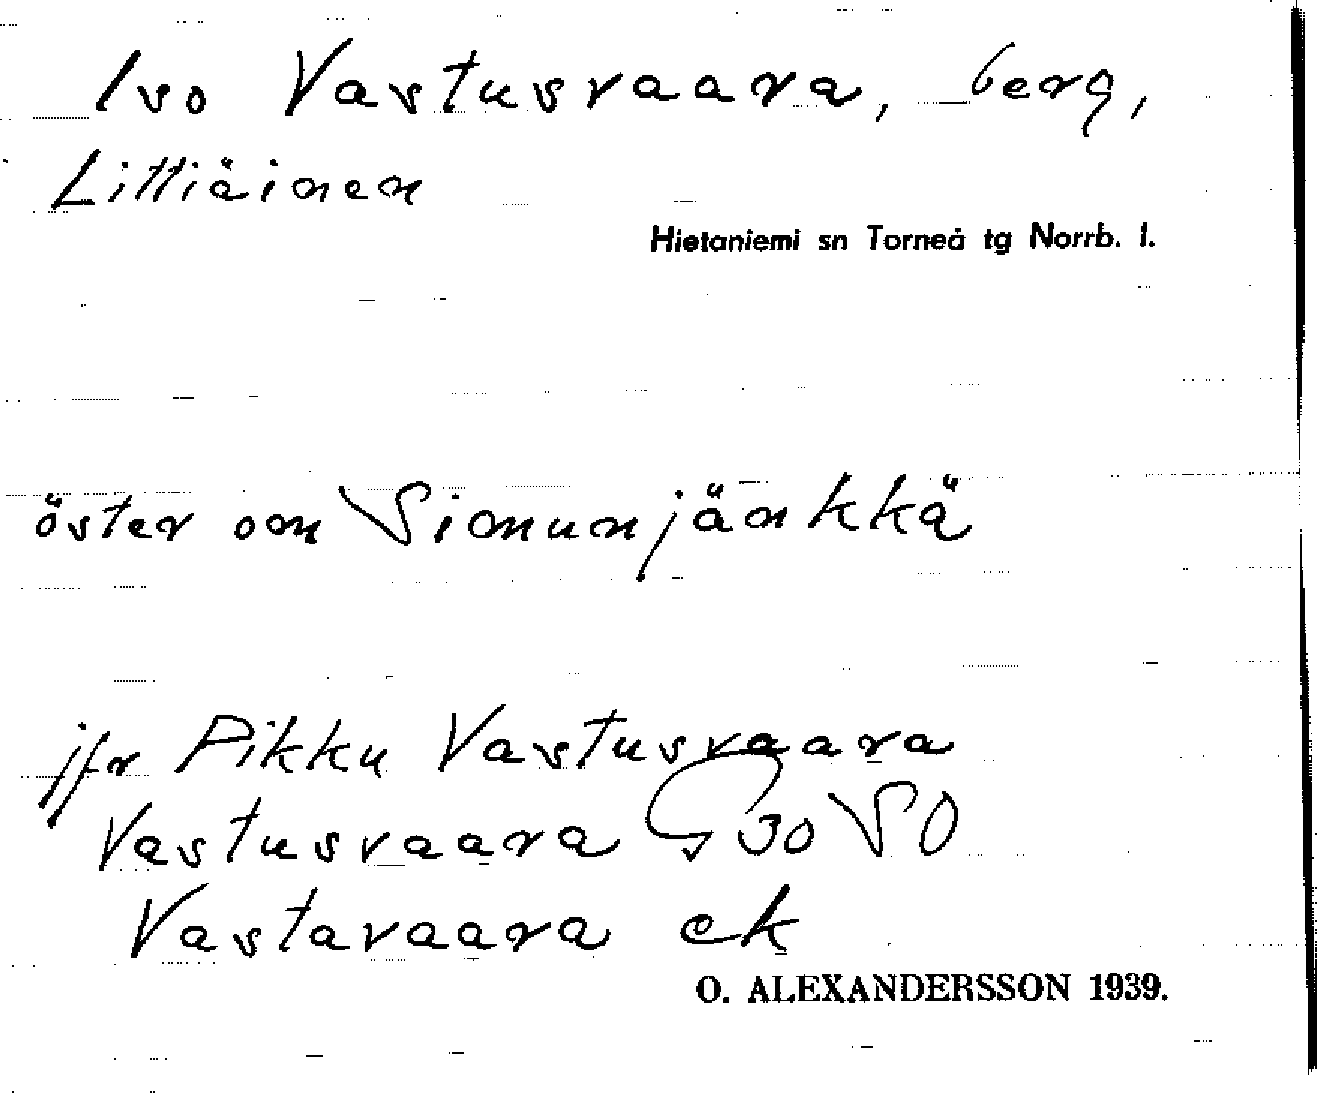 Iso Vastusvaara, berg,
Littiäinen
Hietaniemi sn Torneå tg Norrb. l.
öster om Simunjänkkä
jfr Pikku Vastusvaara
Vastusvaara G 30 SO
Vastavaara ek
O. ALEXANDERSSON 1939.